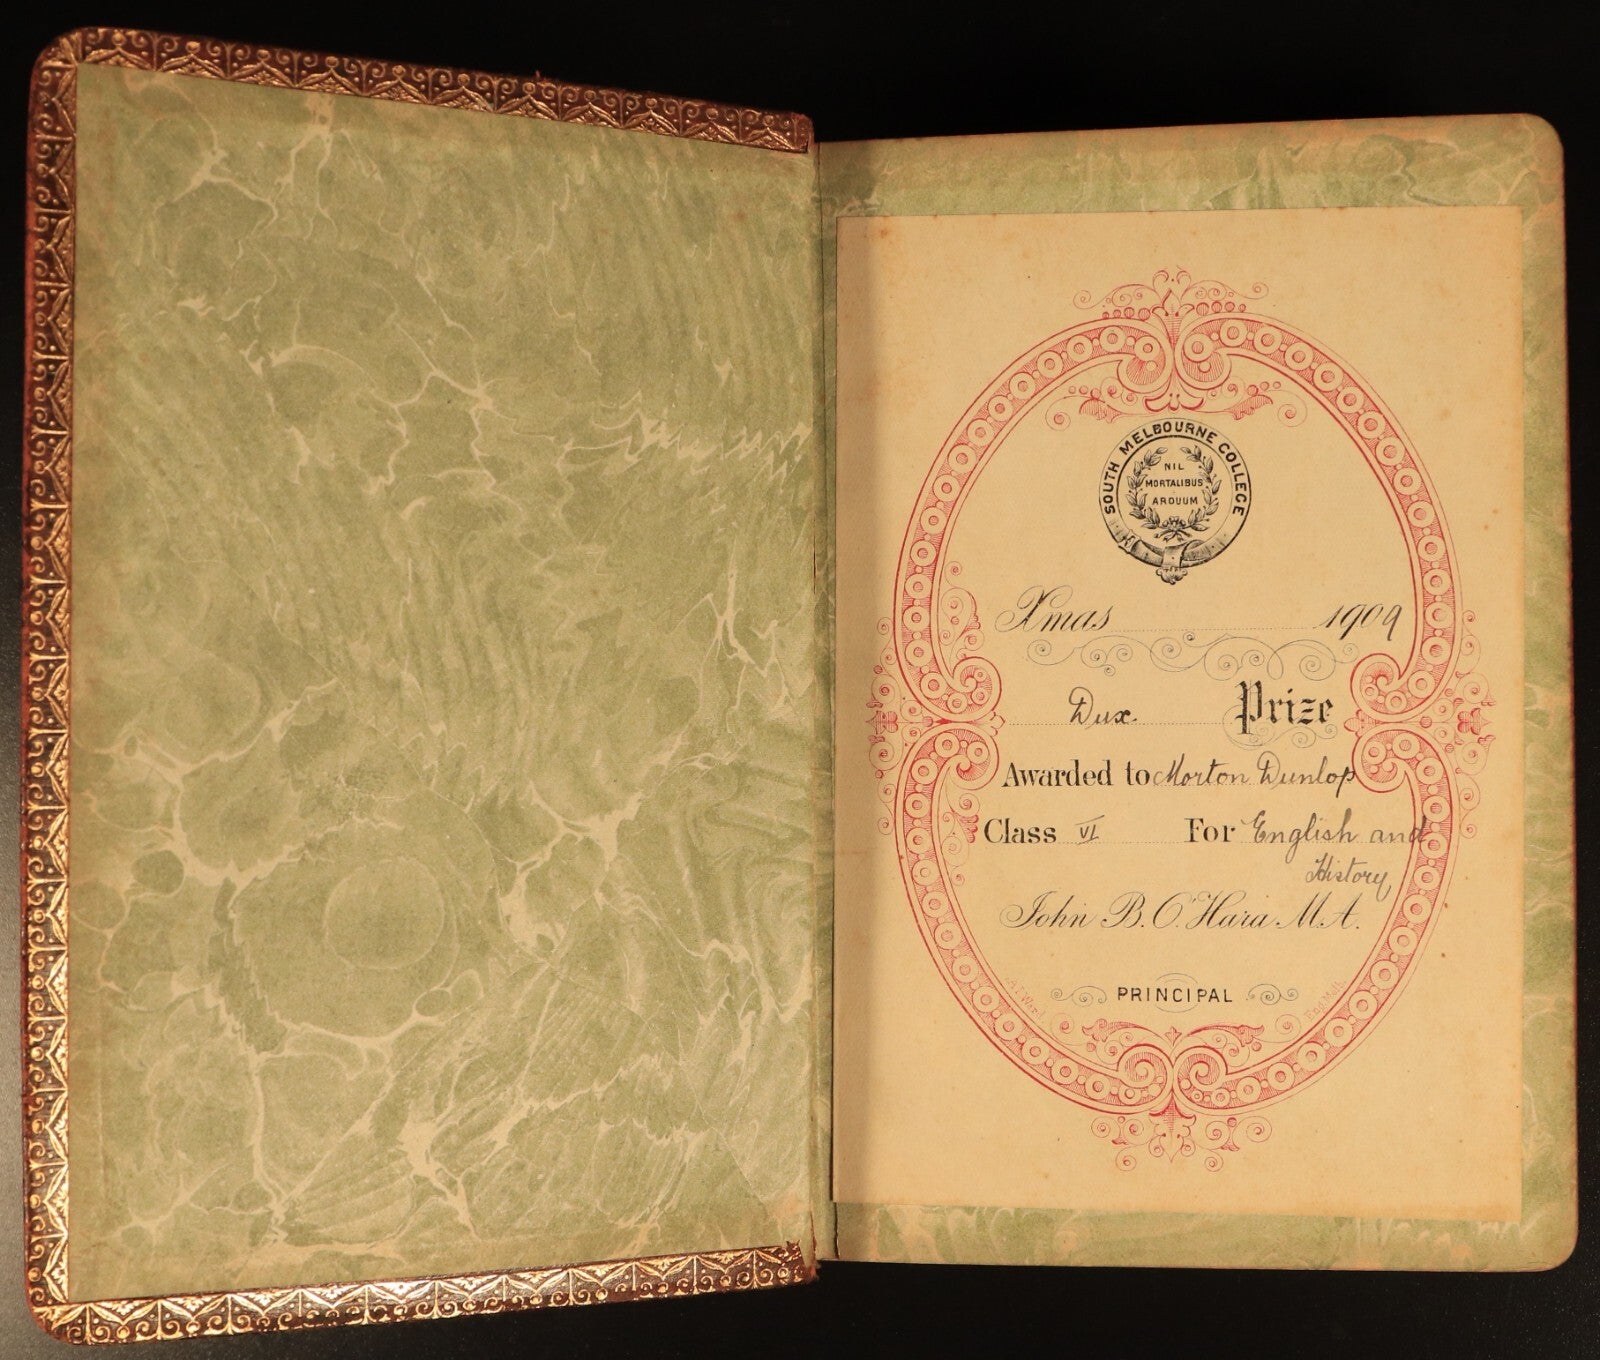 SOUTH MELBOURNE COLLEGE
NIL
MORTALIBUS
ARDUUM
Xmas 1909
Dux. Prize
Awarded to Morton Dunlop
Class VI For English and
History
John B. O'Hara M.A.
PRINCIPAL
A.J. Ward. Eng. Melb.